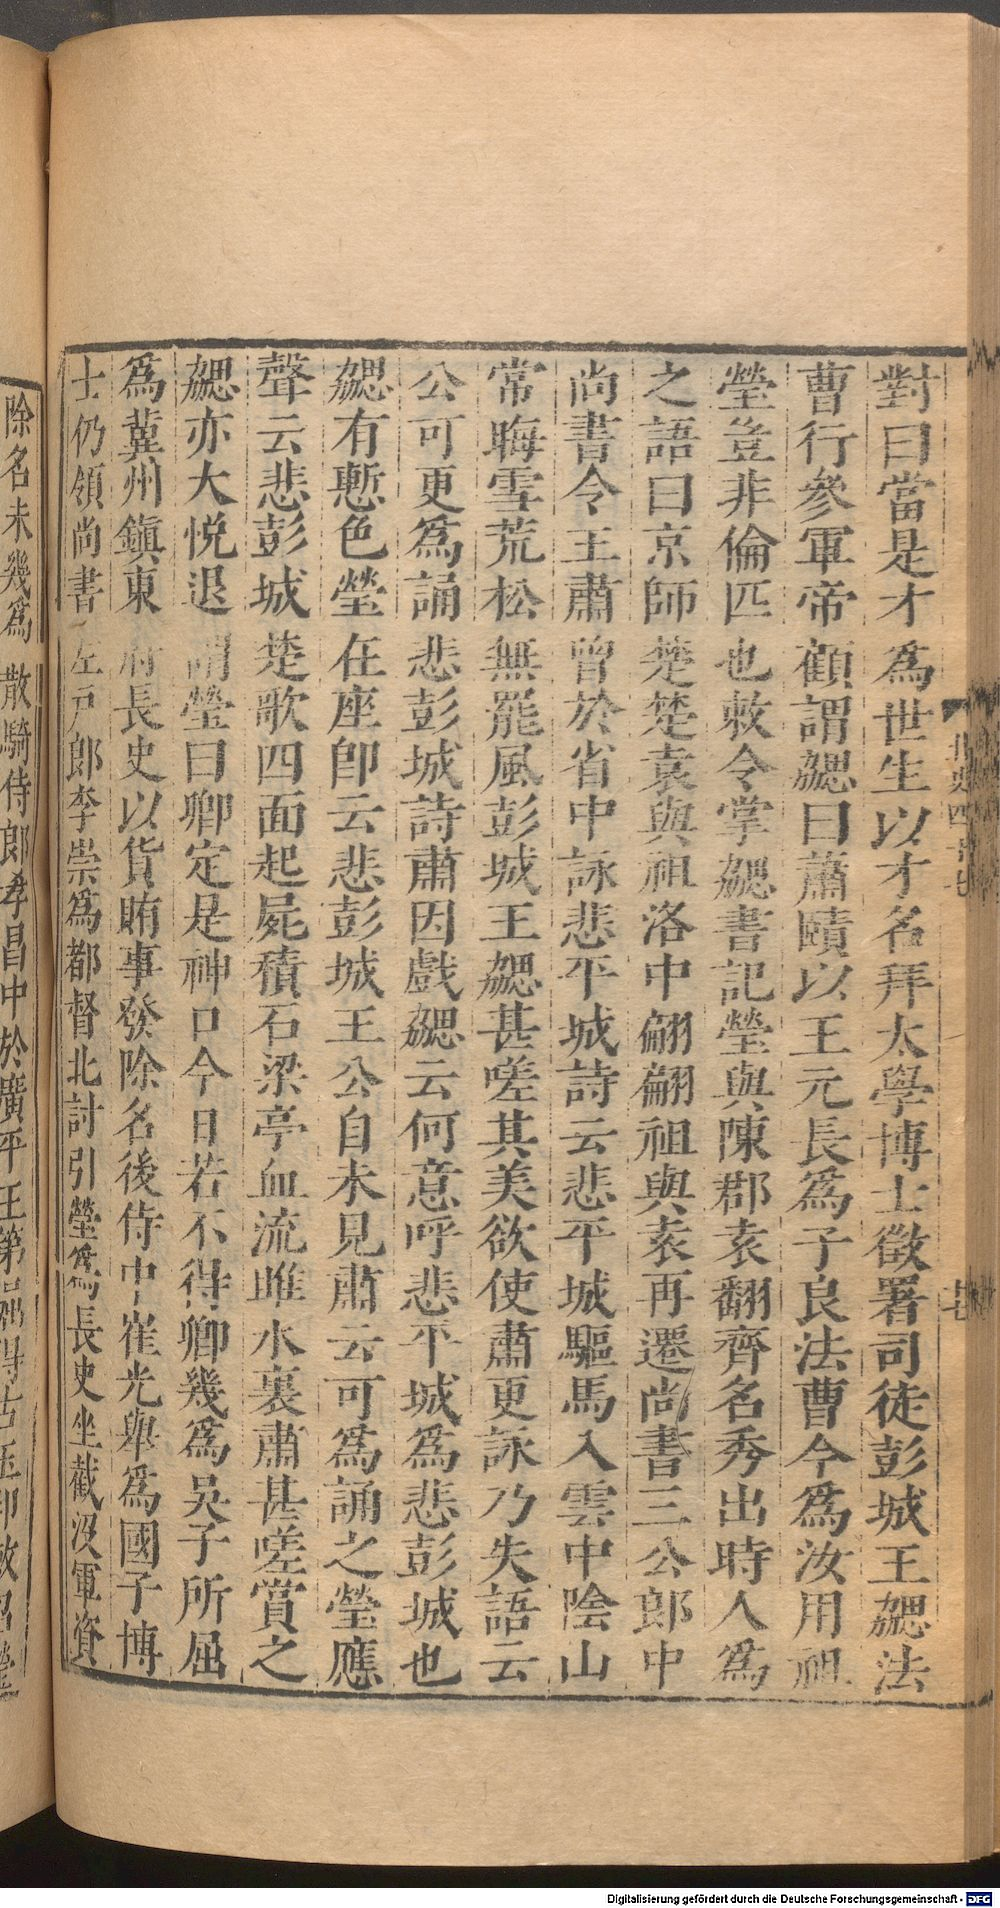 對曰當是才爲世生以才名拜太學博士徵署司徒彭城王勰法
曹行參軍帝顧謂勰曰蕭賾以王元長爲子良法曹今爲汝用祖
瑩豈非倫匹也敕令掌勰書記瑩與陳郡袁翻齊名秀出時人爲
之語曰京師楚楚袁與祖洛中翩翩祖與袁再遷尚書三公郎中
尚書令王肅曾於省中詠悲平城詩云悲平城驅馬入雲中陰山
常晦雪荒松無罷風彭城王勰甚嗟其美欲使肅更詠乃失語云
公可更爲誦悲彭城詩肅因戲勰云何意呼悲平城爲悲彭城也
勰有慙色瑩在座卽云悲彭城王公自未見肅云可爲誦之瑩應
聲云悲彭城楚歌四面起屍積石梁亭血流睢水裏肅甚嗟賞之
勰亦大悅退謂瑩曰卿定是神口今日若不得卿幾爲吳子所屈
爲冀州鎮東府長史以貨賄事發除名後侍中崔光舉爲國子博
士仍領尚書左戶郎李崇爲都督北討引瑩爲長史坐截没軍資
除名未幾爲散騎侍郎孝昌中於廣平王第掘得古玉印敕召瑩
Digitalisierung gefördert durch die Deutsche Forschungsgemeinschaft - DFG